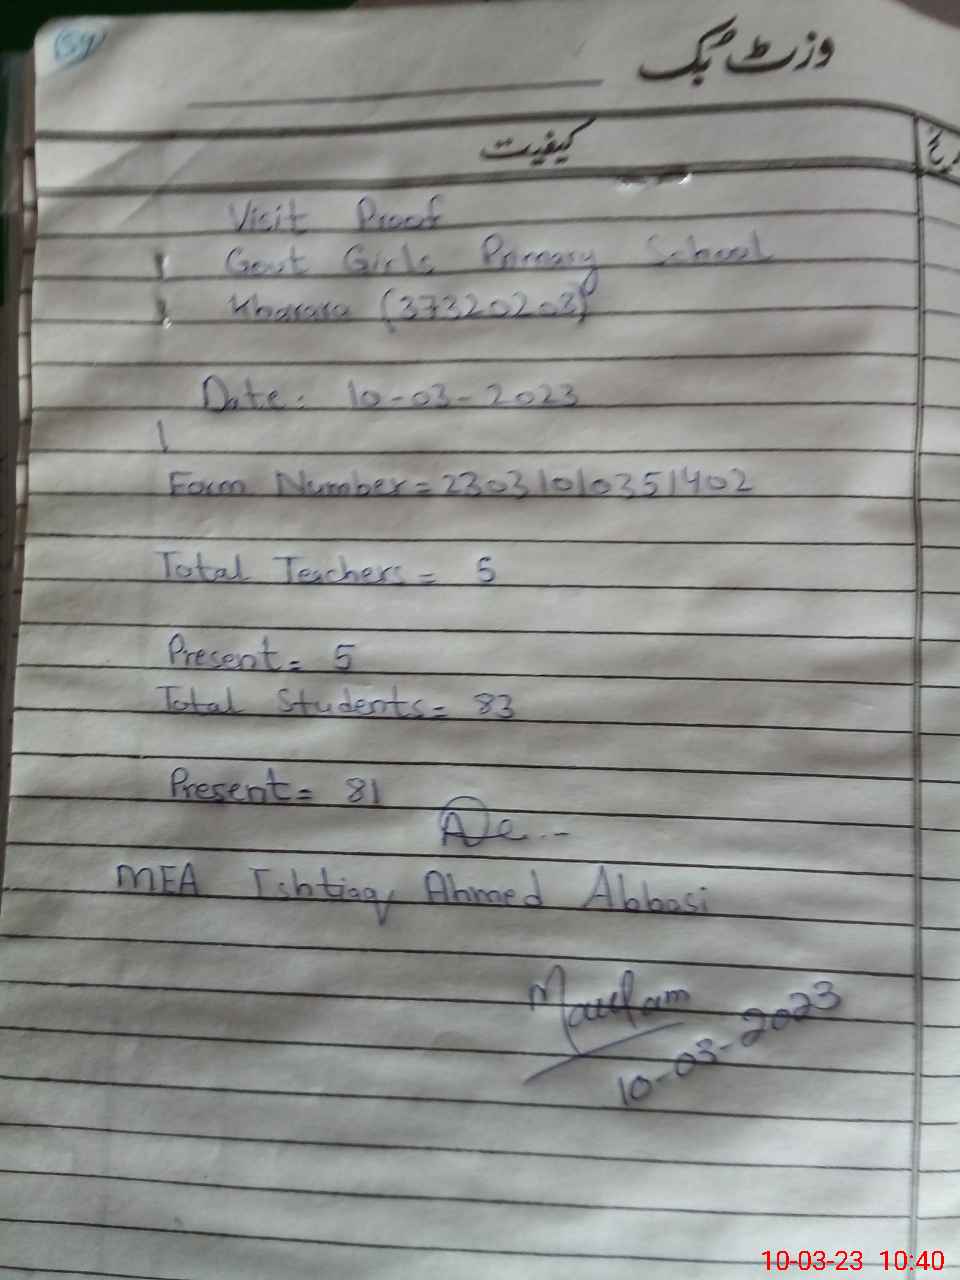 59
وزٹ بک
کیفیت
Visit Proof
Govt Girls Primary School
Kharara (37320203)
Date: 10-03-2023
Form Number = 23031010351402
Total Teachers = 5
Present = 5
Total Students = 83
Present = 81
MEA Ishtiaq Ahmed Abbasi
10-03-2023
10-03-23 10:40